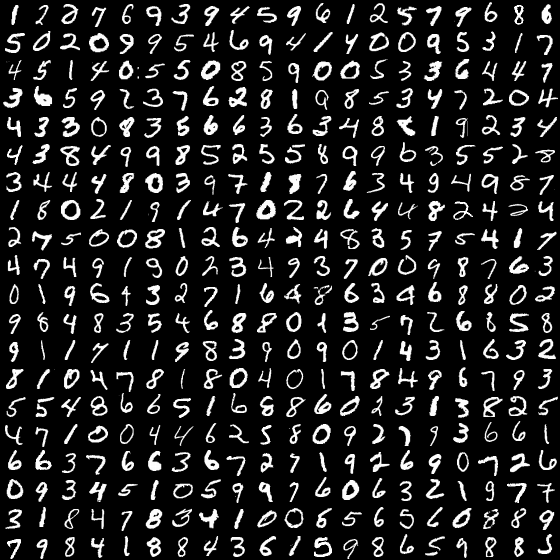 1 2 2 7 6 9 3 9 4 5 9 9 6 1 2 5 7 9 6 8 6
5 0 2 0 9 9 5 4 6 9 4 1 4 0 0 9 5 3 1 7
4 5 1 4 0 5 5 0 8 5 9 0 0 5 3 3 6 4 4 7
3 6 5 9 2 3 7 6 2 8 1 9 8 5 3 4 7 2 0 4
4 3 3 0 8 3 5 6 6 3 6 3 4 8 1 9 2 3 4
4 3 8 4 9 9 8 5 2 5 5 8 9 9 6 3 5 5 2 8
3 4 4 4 8 0 3 9 7 1 8 7 6 3 4 9 4 9 8 7
1 8 0 2 1 9 1 4 7 0 2 2 6 4 4 8 2 4 2 4
2 7 5 0 0 8 1 2 6 4 2 4 8 3 5 7 5 4 1 7
4 7 4 9 1 9 0 2 3 4 9 3 7 0 0 9 8 7 6 3
0 1 9 6 4 3 2 7 1 6 4 8 6 3 4 6 8 8 0 2
9 8 4 8 3 5 4 6 8 8 0 1 3 5 7 2 6 8 5 8
9 1 1 7 1 1 9 8 3 9 0 9 0 1 4 3 1 6 3 2
8 1 0 4 7 8 1 8 0 4 0 1 7 8 4 9 6 7 9 3
5 5 4 8 6 6 5 1 6 8 8 6 0 2 3 1 3 8 2 5
4 7 1 0 0 4 4 6 2 5 8 0 9 2 7 9 3 6 6 1
6 6 3 7 6 6 3 6 7 2 7 1 9 2 6 9 0 7 2 6
0 9 3 4 5 1 0 5 9 9 7 6 0 6 3 2 1 9 7 7
3 1 8 4 7 8 3 4 1 0 0 6 5 6 5 6 0 8 8 9
7 9 8 4 1 8 8 4 3 6 1 5 9 8 6 5 9 8 8 5